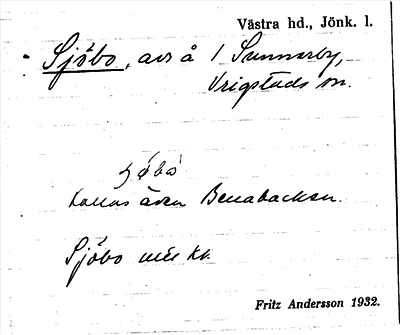 Västra hd., Jönk. l.
Sjöbo, avs å 1 Sunnerby,
Vrigstads sn.
kallas även Benabacken.
Sjöbo
Fritz Andersson 1932.